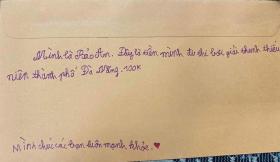 Mình là Bảo An. Đây là tiền mình đi thi bơi giải thanh thiếu
niên thành phố Đà Nẵng. 700K
Mình chúc các bạn luôn mạnh khỏe. ♥